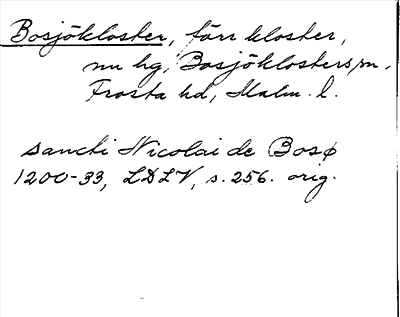 Bosjökloster, förr kloster,
nu hg, Bosjöklosters sn,
Frosta hd, Malm. l.
sancti Nicolai de Bosø
1200-33, LDLV, s. 256. orig.